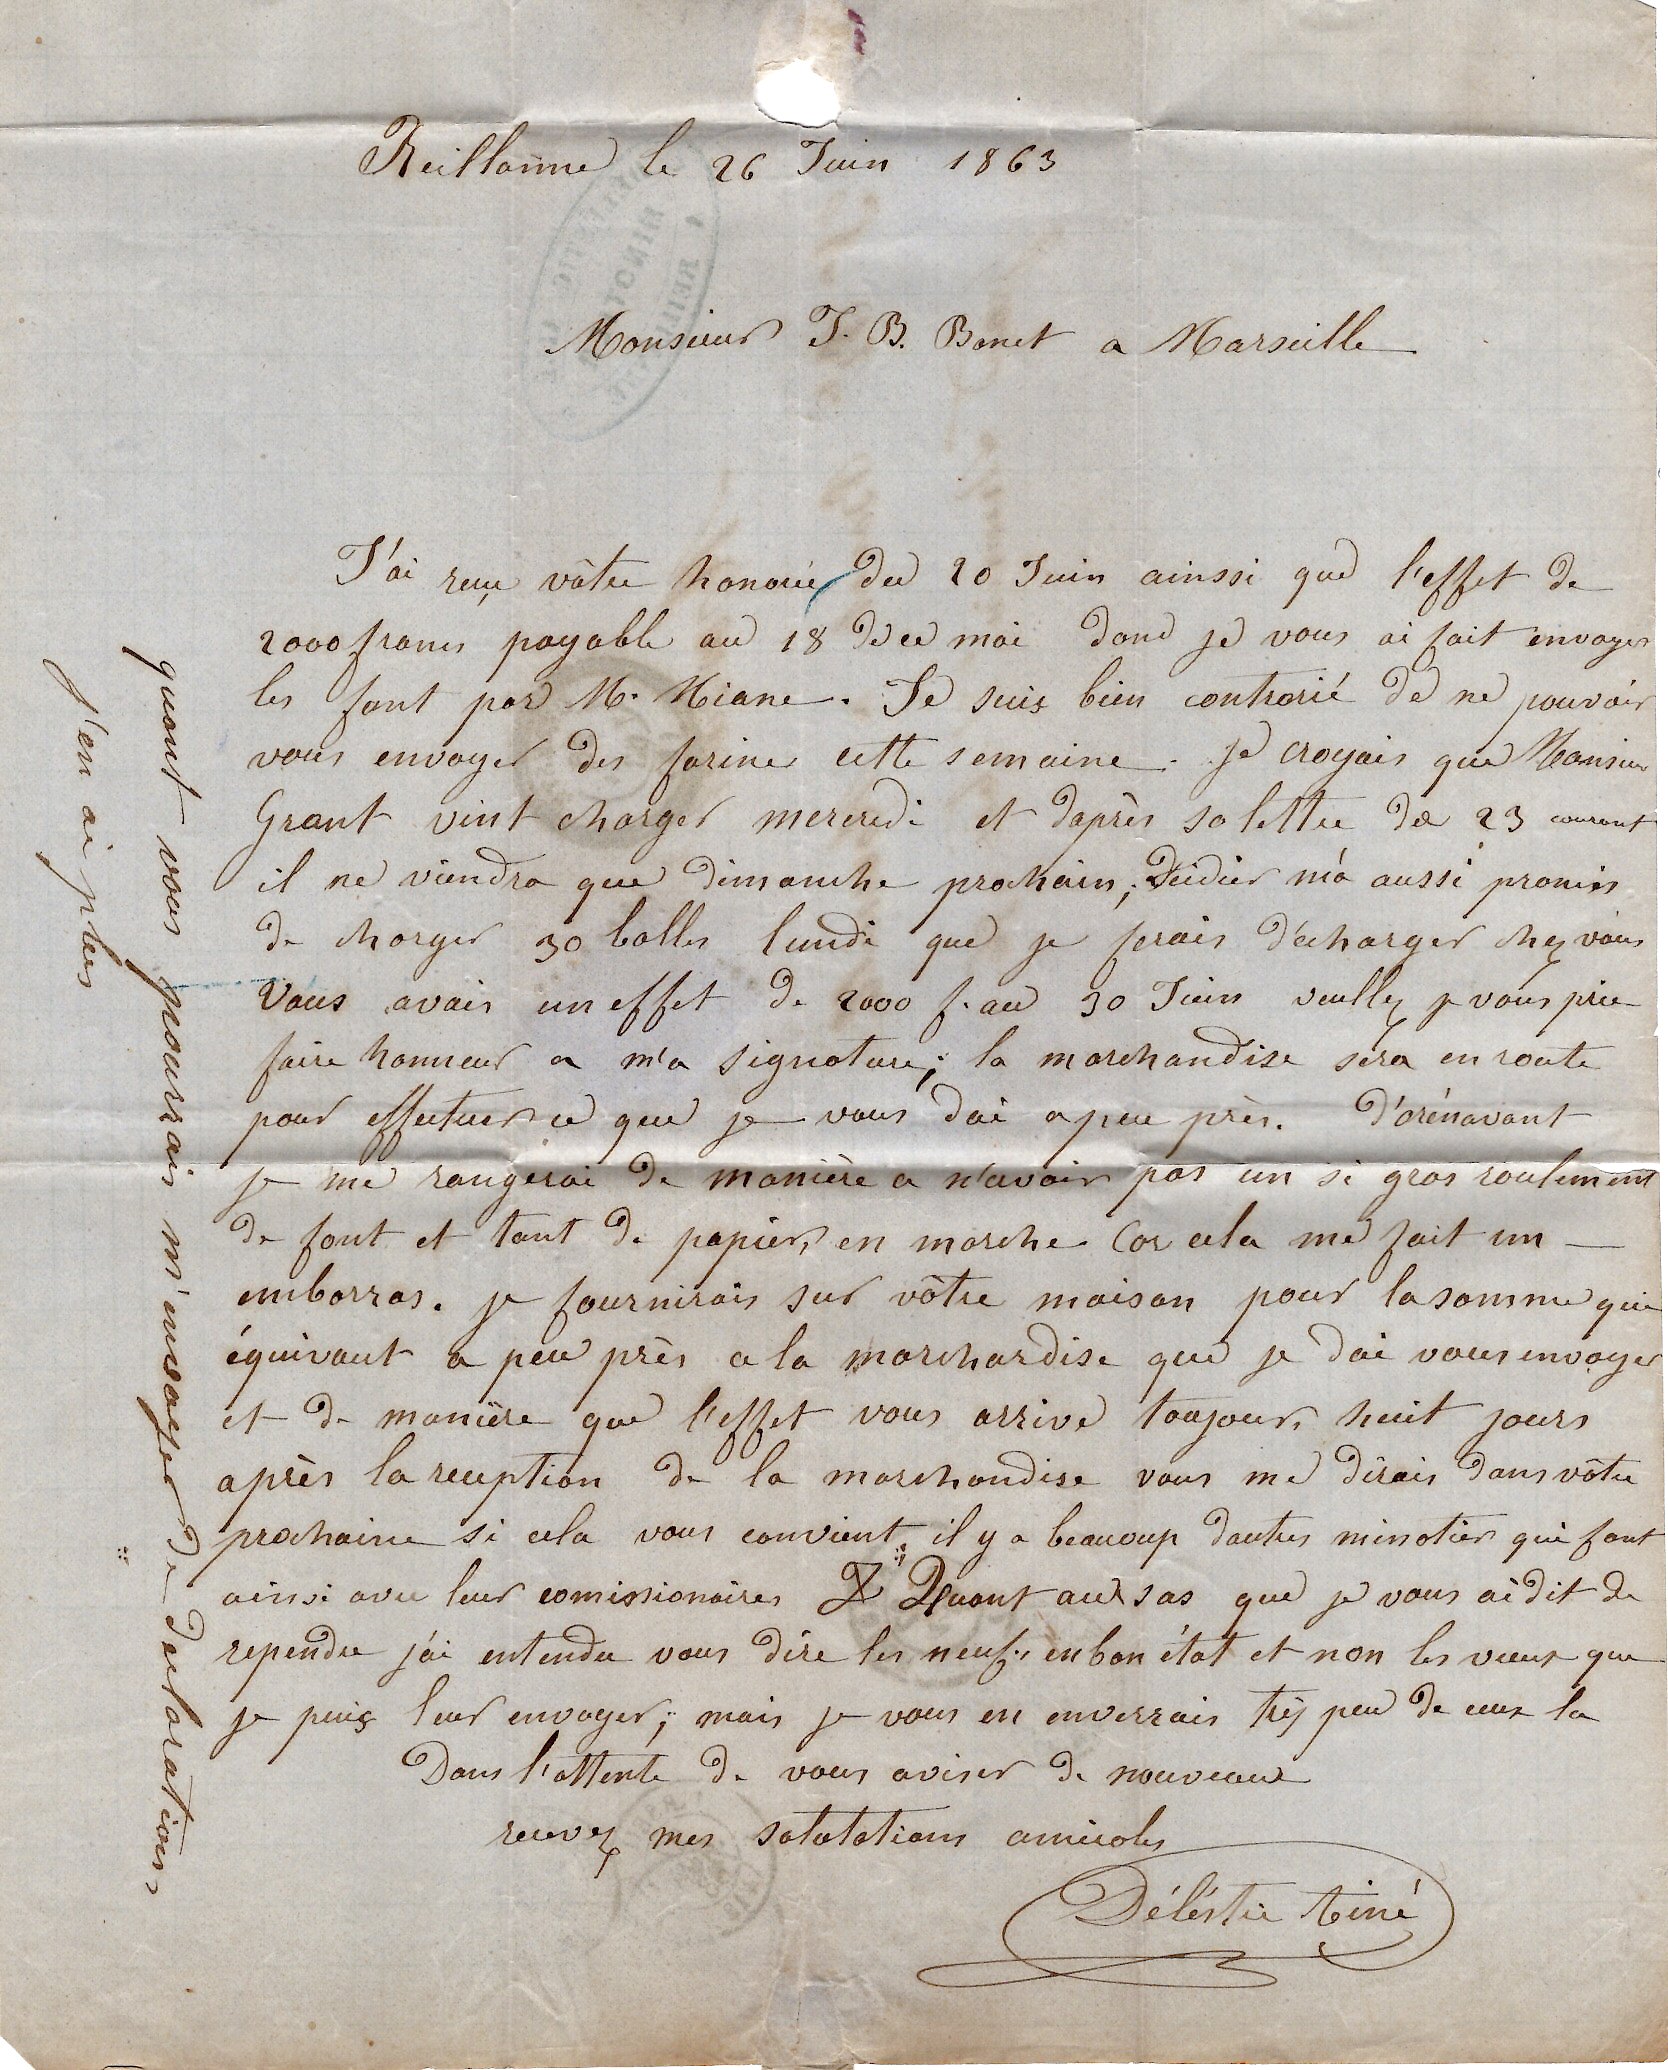 Reillanne le 26 Juin 1863
Monsieur J. B. Bonet a Marseille
J'ai reçu vôtre honorée du 20 Juin ainssi que l'effet de
2000 francs payable au 18 de ce moi donc je vous ai fait envoyer
les font par M. Miane. Je suis bien contrarié de ne pouvoir
vous envoyer des farines cette semaine. je croyais que Monsieur
Grant vint charger mercredi et daprès sa lettre de 23 courant
il ne viendra que dimanche prochain; Deidier m'a aussi promis
de charger 30 balles lundi que je ferais décharger chez vous
Vous avais un effet de 2000 f. au 30 Juin veullez je vous prie
faire honneur a m'a signature; la marchandise sera en route
pour effectuer ce que je vous doi a peu près. D'orénavant
je me rangerai de manière a n'avoir pas un si gros roulement
de font et tant de papiers en marche Car cela me fait un
embarras. je fournirais sur vôtre maison pour la somme qui
équivaut a peu près a la marchardise que je doi vous envoyer
et de manière que l'effet vous arrive toujours huit jours
après la reception de la marchandise vous me dirais dans vôtre
prochaine si cela vous convient, il y a beaucoup dautres minotiers qui font
ainsi avec leur comissionaires Quant aux sas que je vous ai dit de
rependre j'ai entendu vous dire les neufs en bon état et non les vieux que
je puis leur envoyer; mais je vous en enverrais très peu de ceux la
Dans l'attente de vous aviser de nouveaux
recevez mes salutations amicales
Délestic Ainé
quant vous pourrais m'envoyer de declarations
j'en ai plus